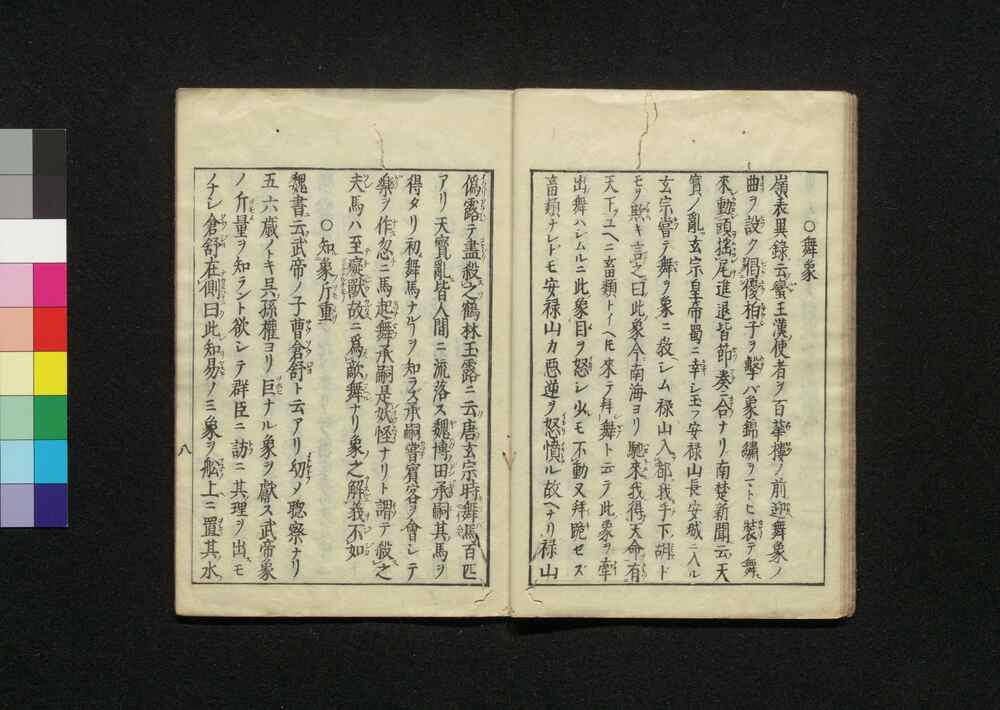 ○舞象
嶺表異録云蜜王漢使者ヲ百華樓ノ前迎舞象ノ
曲ヲ設ク倡優拍子ヲ撃バ象錦繡ヲマトヒ裝テ舞
來動頭搖尾進退皆節奏ニ合ナリ南楚新聞云天
寳ノ亂玄宗皇帝蜀ニ幸シ玉フ安禄山長安城ニ入ル
玄宗嘗テ舞ヲノ象ニ敎シム禄山入都我手下胡ト
モヲ煦キ言之曰此象今南海ヨリ馳來我得天命有
天下ユヘニ畜類トイヘ𪜈來テ拜舞ト云テ此象ヲ牽
出舞ハシムルニ此象目ヲ怒シ少モ不動又拜跪セズ
畜類ナレドモ安禄山カ悪逆ヲ怒憤ル故ヘナリ禄山
僞露テ盡殺之鶴林玉露ニ云唐玄宗時舞馬百匹
アリ天寳亂皆人間ニ流落ス魏博田承嗣其馬ヲ
得タリ初舞馬ナルヿヲ知ラズ承嗣嘗賓客ヲ會シテ
樂ヲ作忽ニ馬起舞承嗣是妖怪ナリト謂テ殺之
夫馬ハ至癡獸故ニ爲敵舞ナリ象之解義不如
○知象斤重
魏書云武帝ノ子曹倉舒ト云アリ幼ノ聰察ナリ
五六歳ノトキ呉孫權ヨリ巨ナル象ヲ獻ス武帝象
ノ斤量ヲ知ラント欲シテ群臣ニ訪ニ其理ヲ出モ
ノナシ倉舒在側曰此知易ノミ象ヲ舩上ニ置其水
八